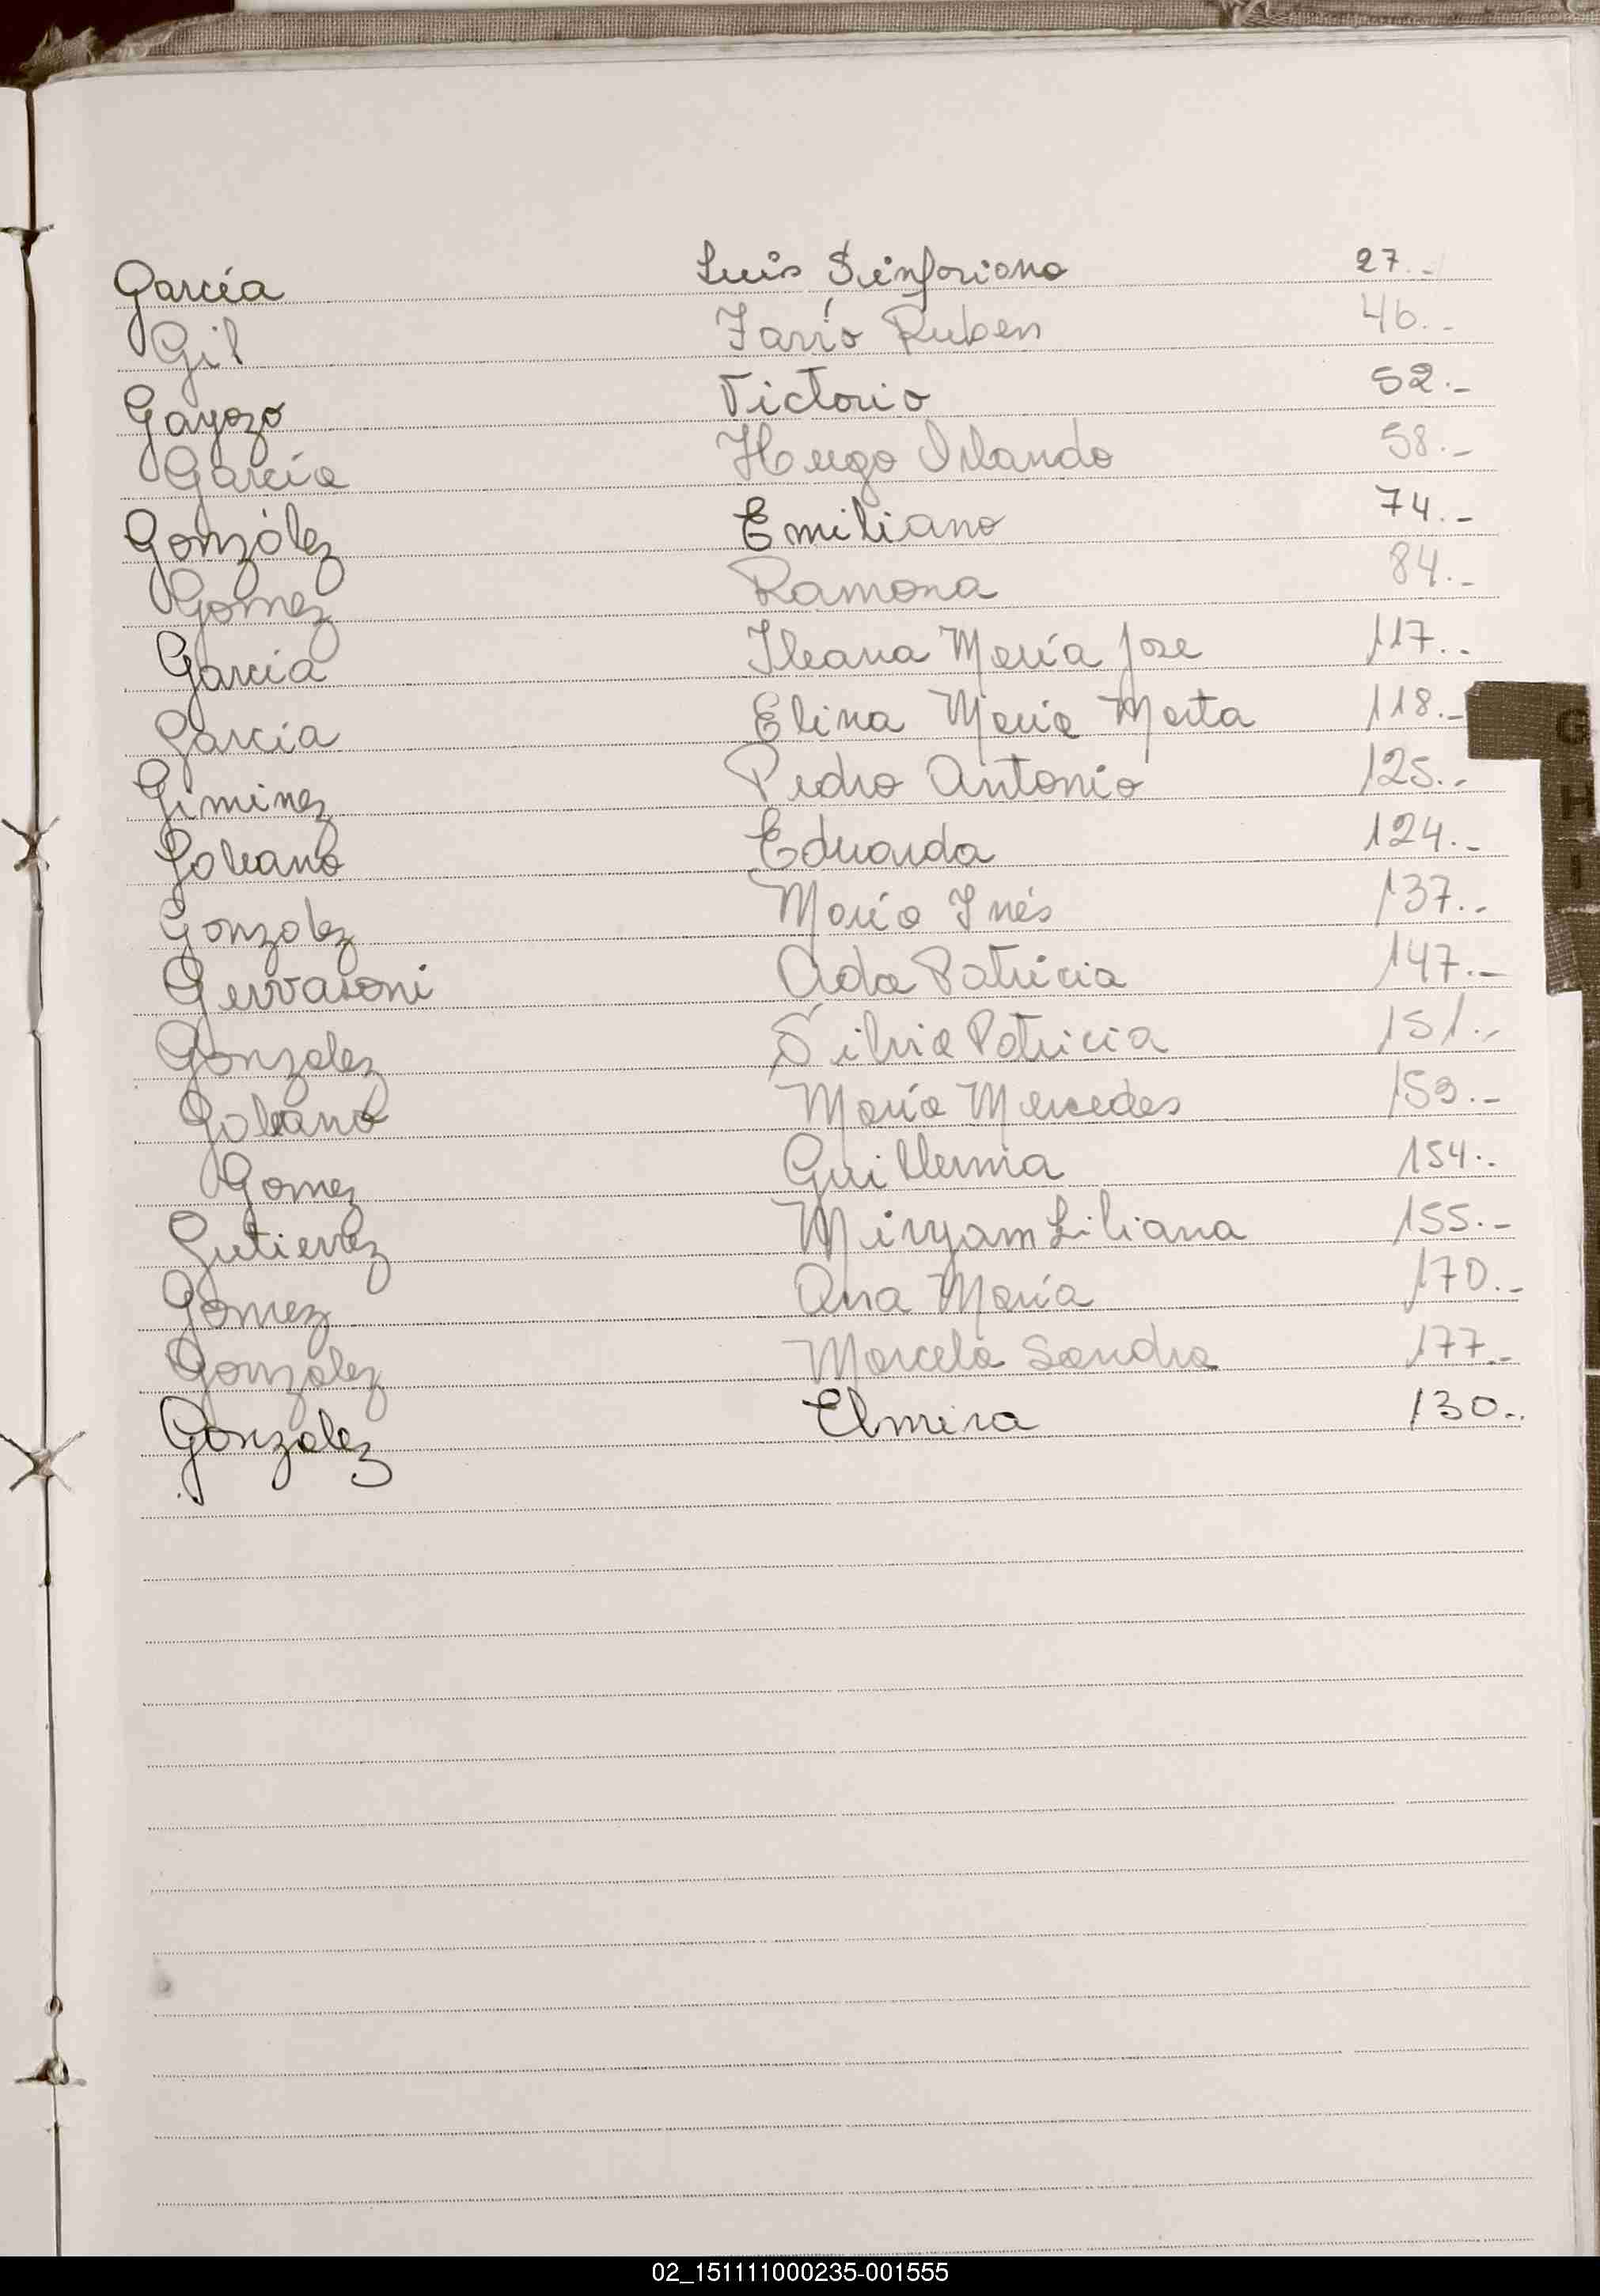 García Luis Sinforiano 27.-
Gil Ruben 46.-
Gayozo Victorio 52.-
García Hugo Orlando 58.-
González Emiliano 74.-
Gomez Ramona 84.-
García Ileana María Jose 117.-
García Elina María Marta 118.-
Giminez Pedro Antonio 125.-
Galeano Eduarda 124.-
Gonzalez María Inés 137.-
Gervasoni Ada Patricia 147.-
Gonzalez Silvia Patricia 151.-
Galeano María Mercedes
Gomez Guillerma 154.-
Gutierrez Miryam Liliana 155.-
Gomez Ana María 170.-
González Marcela Sandra 177.-
Gonzalez Elmira 130.-
G
H
I
02_151111000235-001555